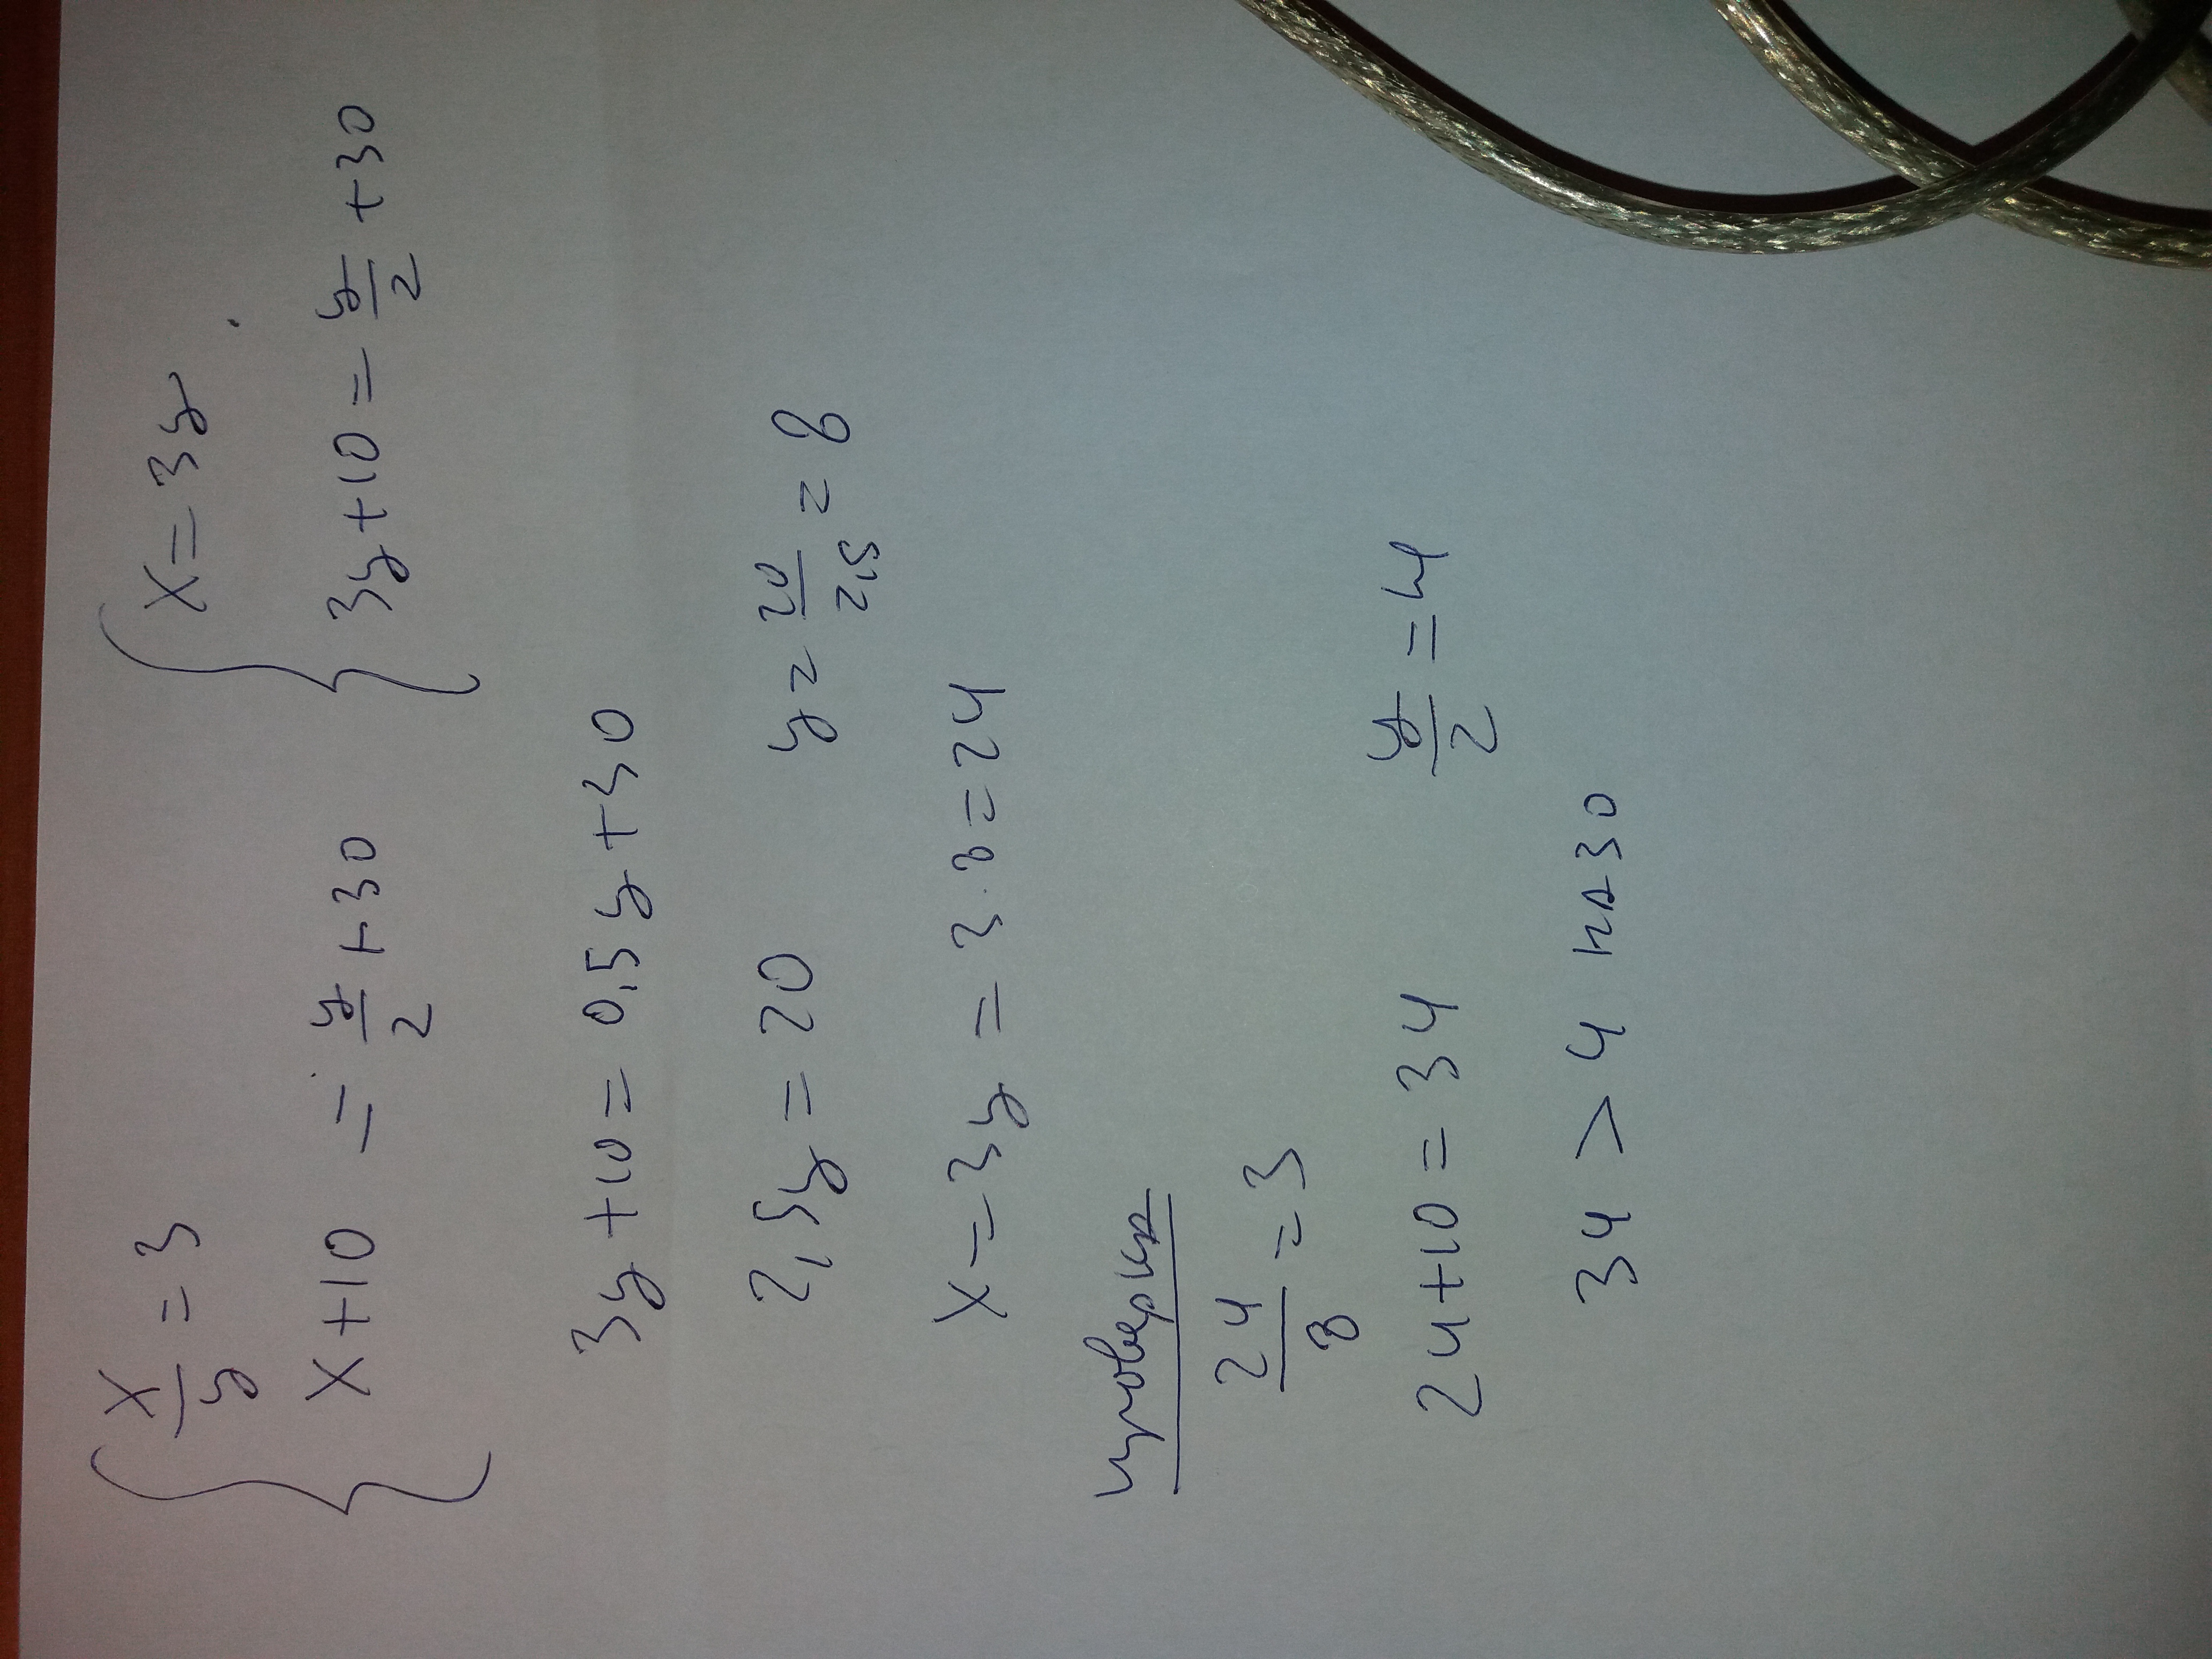 { x/y = 3 { x = 3y
x + 10 = y/2 + 30 3y + 10 = y/2 + 30
3y + 10 = 0,5y + 30
2,5y = 20 y = 20/2,5 = 8
x = 3y = 3 · 8 = 24
проверка
24/8 = 3
24 + 10 = 34 y/2 = 4
34 > 4 на 30